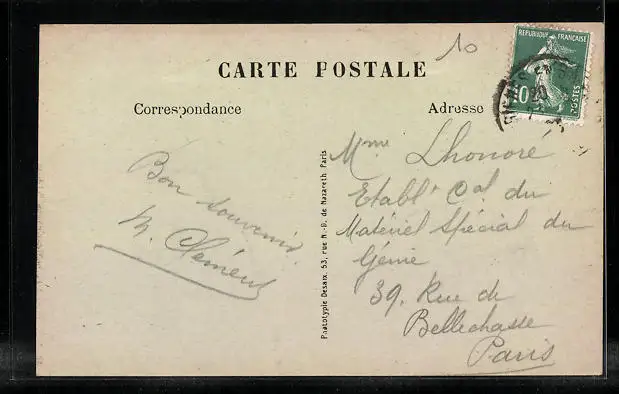 10
REPUBLIQUE FRANÇAISE
POSTES
10
20
CARTE POSTALE
Correspondance
Adresse
Bon souvenir.
M. Clément
Phototypie Desaix, 53, rue N.-D. de Nazareth, Paris
Mme Lhonoré
Etablt Cal du
Matériel Spécial du
Génie
39, Rue de
Bellechasse
Paris